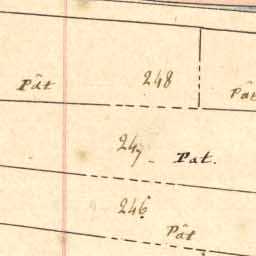 Pât 248 Pât
247 Pat.
246 Pât